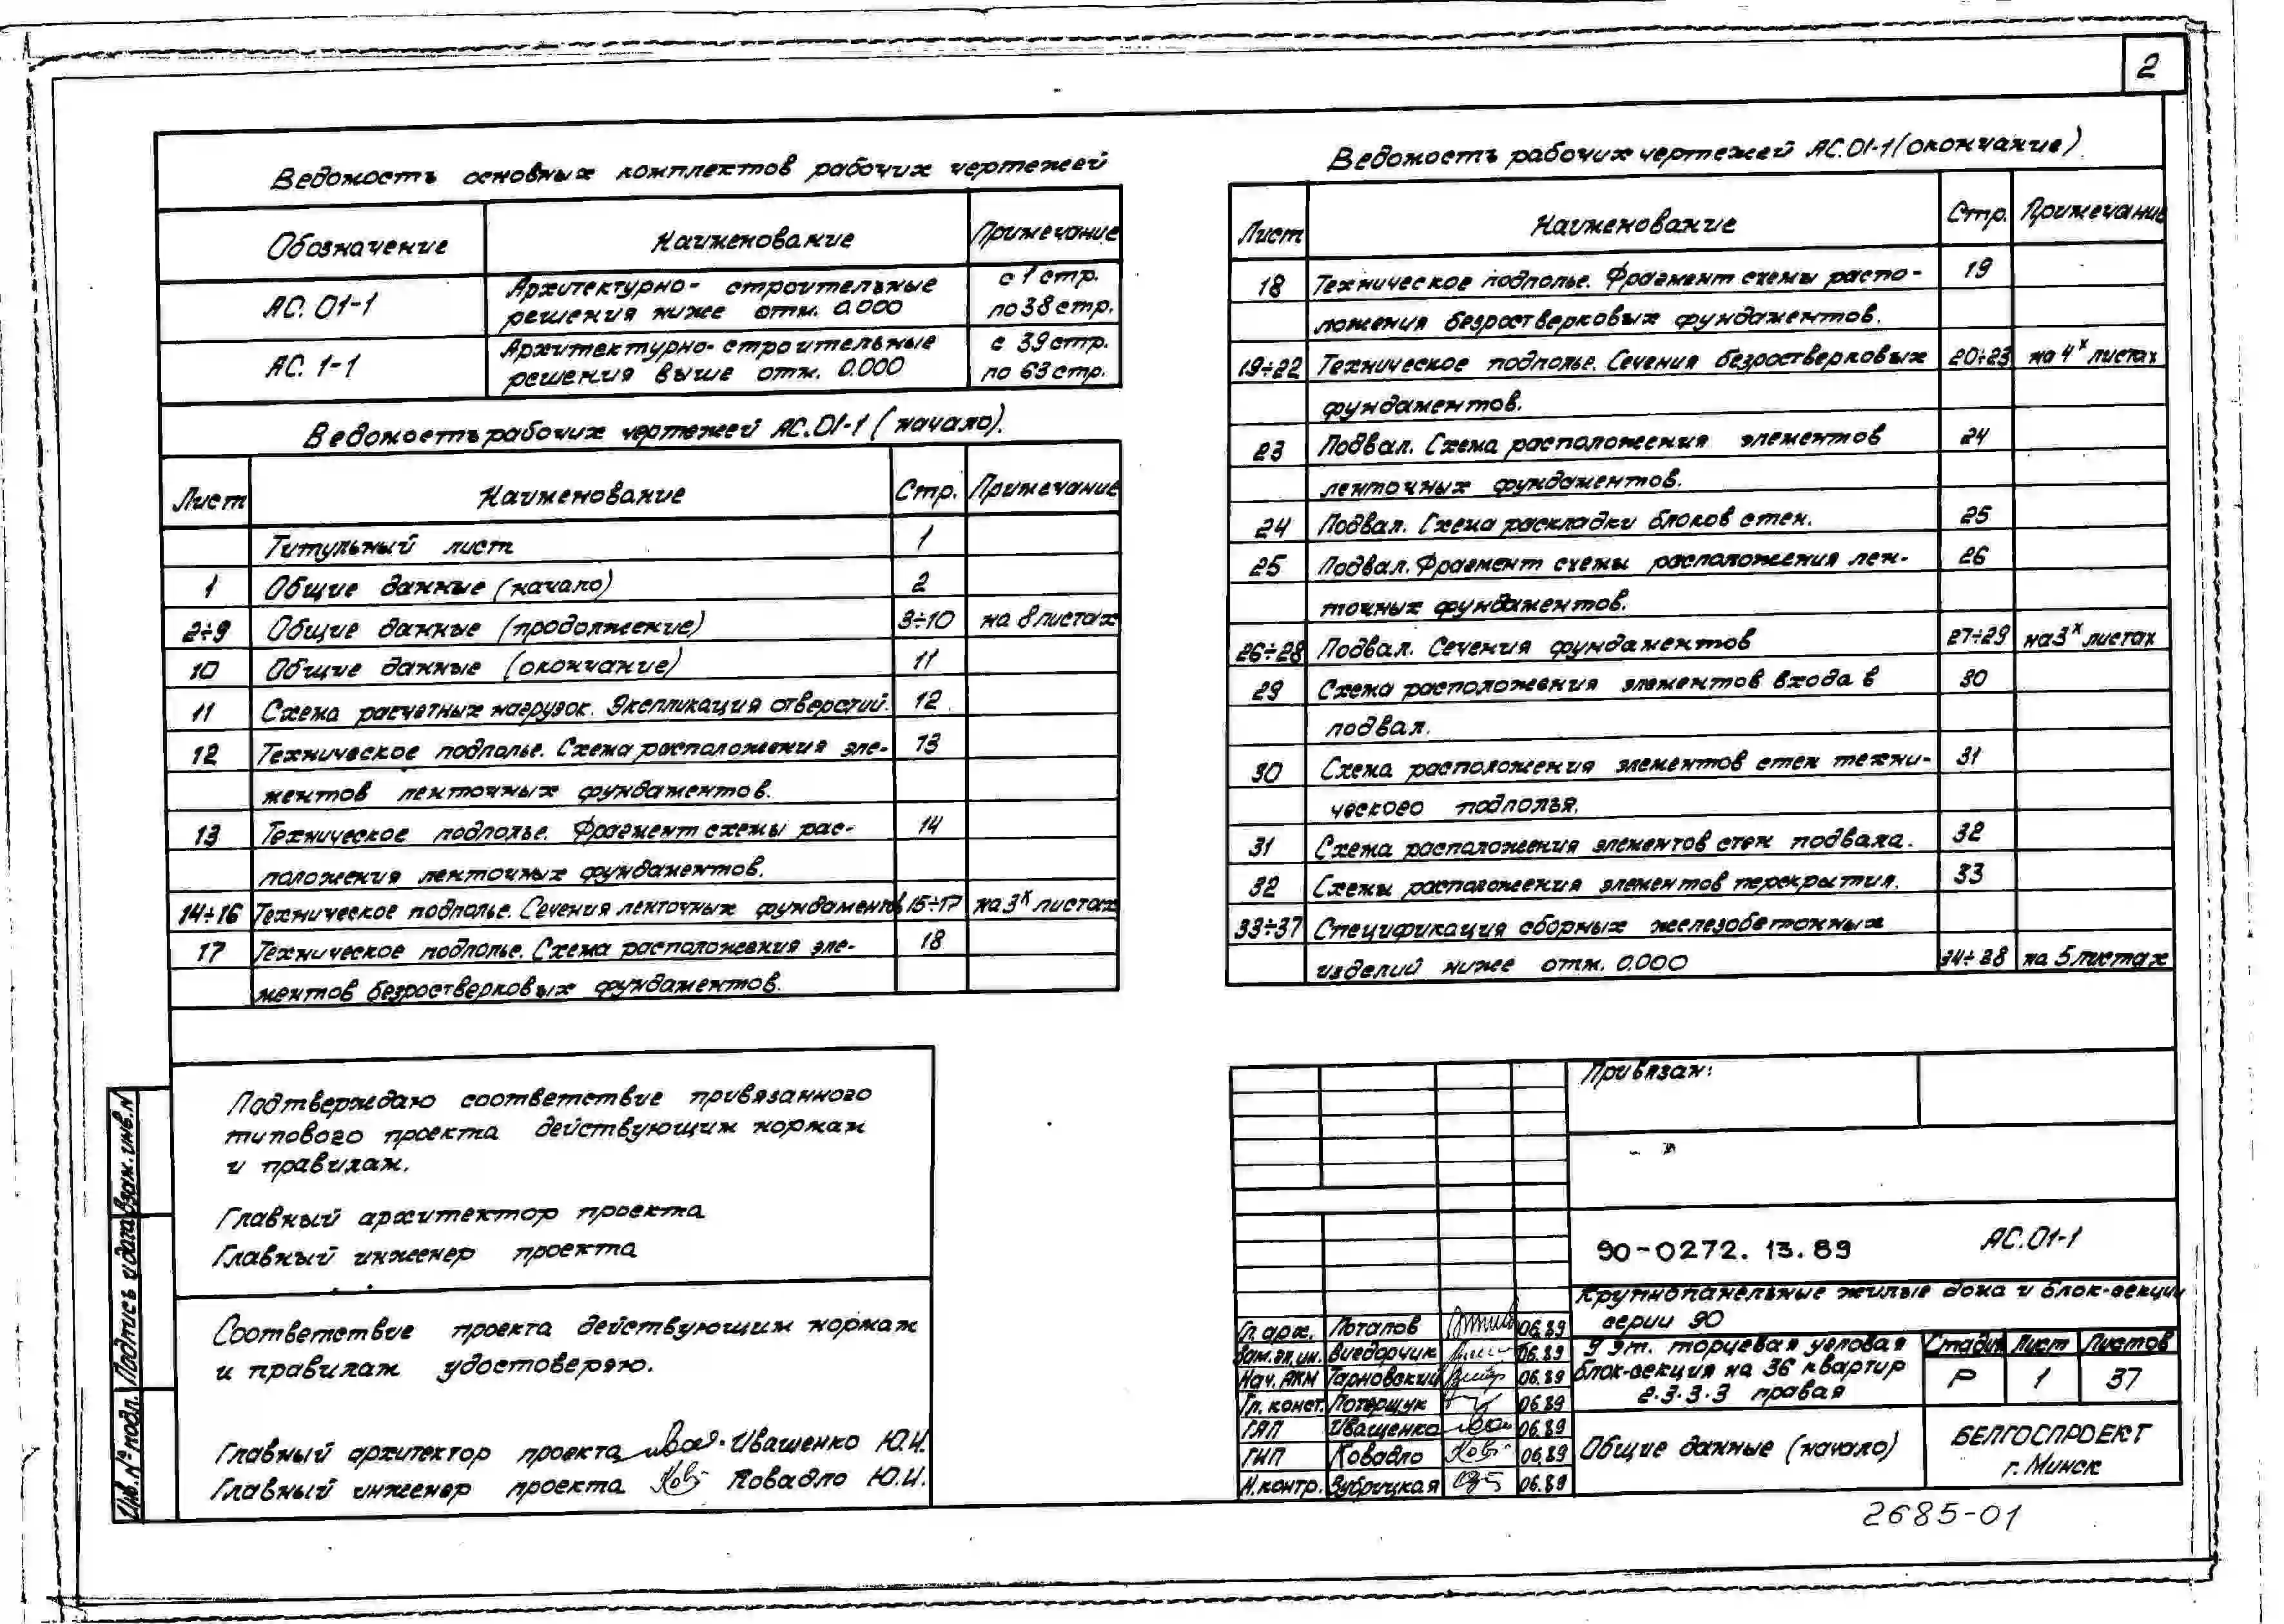 2
Ведомость основных комплектов рабочих чертежей
Обозначение Наименование Примечание
АС. 01-1 Архитектурно-строительные решения ниже отм. 0.000 с 1 стр. по 38 стр.
АС. 1-1 Архитектурно-строительные решения выше отм. 0.000 с 39 стр. по 63 стр.
Ведомость рабочих чертежей АС.01-1 (начало).
Лист Наименование Стр. Примечание
Титульный лист 1
1 Общие данные (начало) 2
2÷9 Общие данные (продолжение) 3÷10 на 8 листах
10 Общие данные (окончание) 11
11 Схема расчетных нагрузок. Экспликация отверстий. 12
12 Техническое подполье. Схема расположения эле- 13
ментов ленточных фундаментов.
13 Техническое подполье. Фрагмент схемы рас- 14
положения ленточных фундаментов.
14÷16 Техническое подполье. Сечения ленточных фундаментов 15÷17 на 3х листах
17 Техническое подполье. Схема расположения эле- 18
ментов безростверковых фундаментов.
Ведомость рабочих чертежей АС.01-1 (окончание)
Лист Наименование Стр. Примечание
18 Техническое подполье. Фрагмент схемы распо- 19
ложения безростверковых фундаментов.
19÷22 Техническое подполье. Сечения безростверковых 20÷23 на 4х листах
фундаментов.
23 Подвал. Схема расположения элементов 24
ленточных фундаментов.
24 Подвал. Схема раскладки блоков стен. 25
25 Подвал. Фрагмент схемы расположения лен- 26
точных фундаментов.
26÷28 Подвал. Сечения фундаментов 27÷29 на 3х листах
29 Схема расположения элементов входа в 30
подвал.
30 Схема расположения элементов стен техни- 31
ческого подполья.
31 Схема расположения элементов стен подвала. 32
32 Схемы расположения элементов перекрытия. 33
33÷37 Спецификация сборных железобетонных
изделий ниже отм. 0.000 34÷38 на 5 листах
Подтверждаю соответствие привязанного
типового проекта действующим нормам
и правилам.
Главный архитектор проекта
Главный инженер проекта
Соответствие проекта действующим нормам
и правилам удостоверяю.
Главный архитектор проекта Иващенко Ю.И.
Главный инженер проекта Ковадло Ю.И.
Взам. инв. N
Подпись и дата
Инв. № подл.
Привязан:
90-0272. 13. 89 АС.01-1
Крупнопанельные жилые дома и блок-секции
серии 90
Гл. арх. Потапов 06.89
Зам. гл. ин. Вигдорчик 06.89
Нач. АКМ Тарновский 06.89
Гл. конст. Потерщук 06.89
ГАП Иващенко 06.89
ГИП Ковадло 06.89
Н. контр. Зубрицкая 06.89
9 эт. торцевая угловая
блок-секция на 36 квартир
2.3.3.3 правая
Стадия Лист Листов
Р 1 37
Общие данные (начало)
БЕЛГОСПРОЕКТ
г. Минск
2685-01